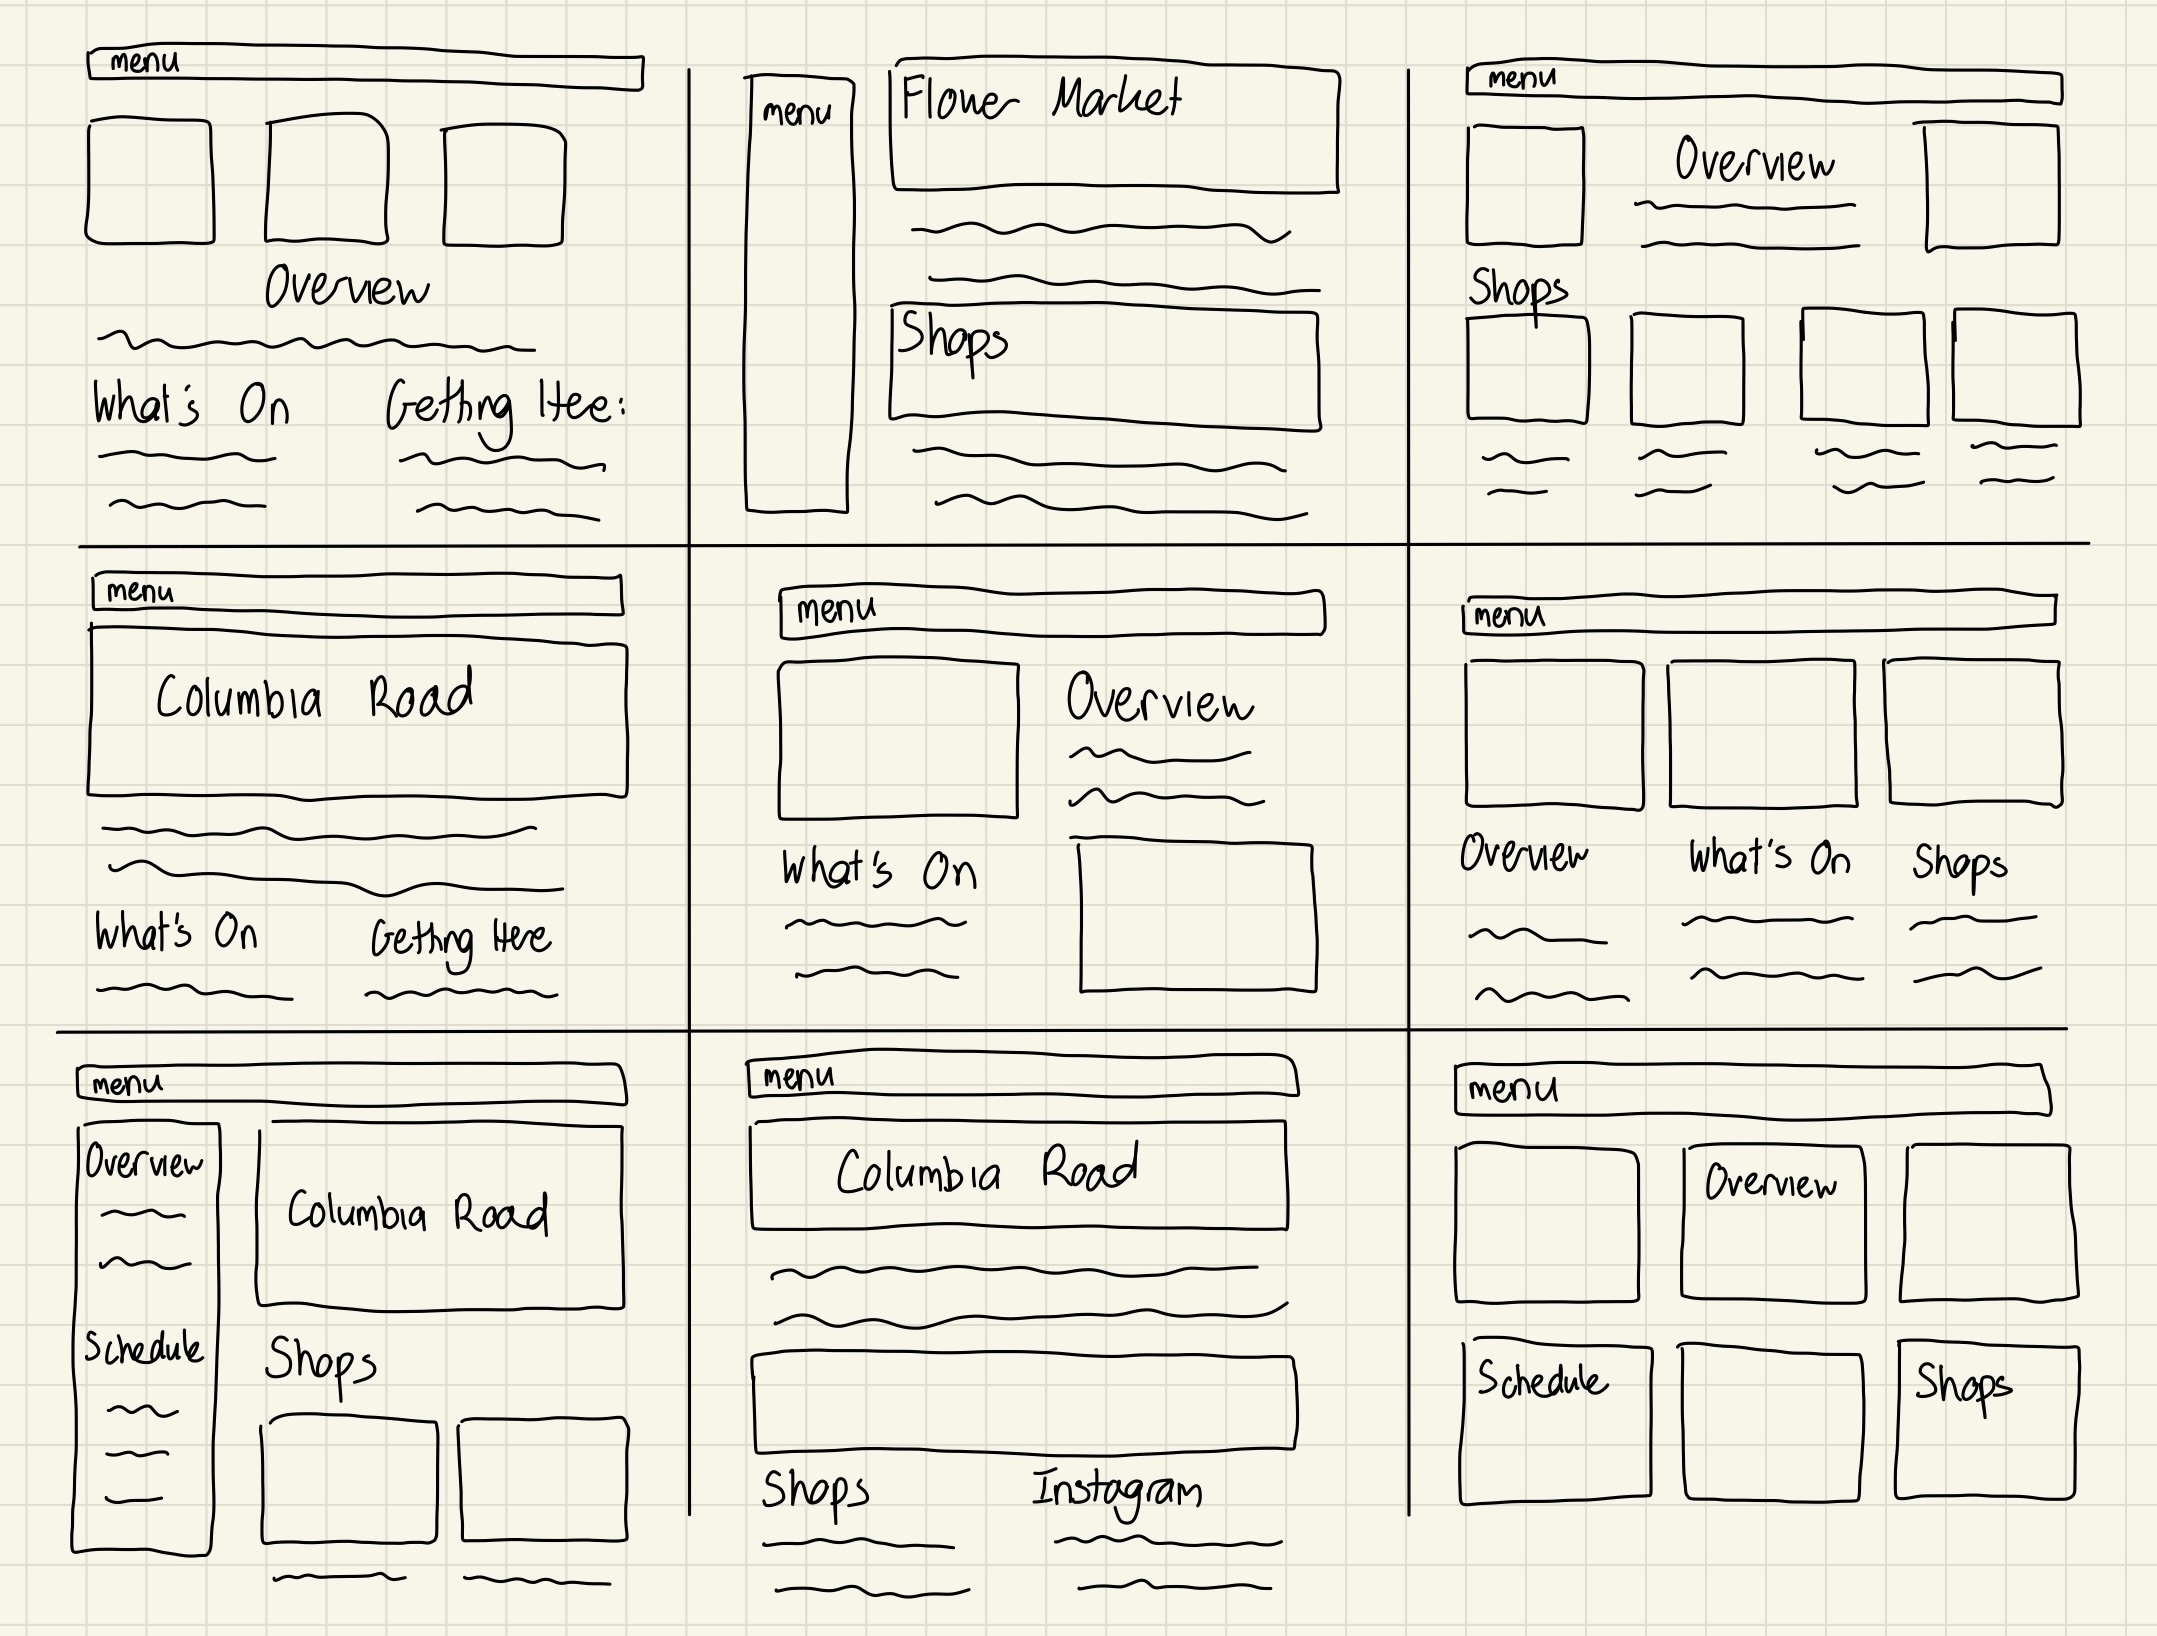 menu
Overview
What's On
Getting Here:
menu
Flower Market
Shops
menu
Overview
Shops
menu
Columbia Road
What's On
Getting Here
menu
Overview
What's On
menu
Overview
What's On
Shops
menu
Overview
Columbia Road
Schedule
Shops
menu
Columbia Road
Shops
Instagram
menu
Overview
Schedule
Shops